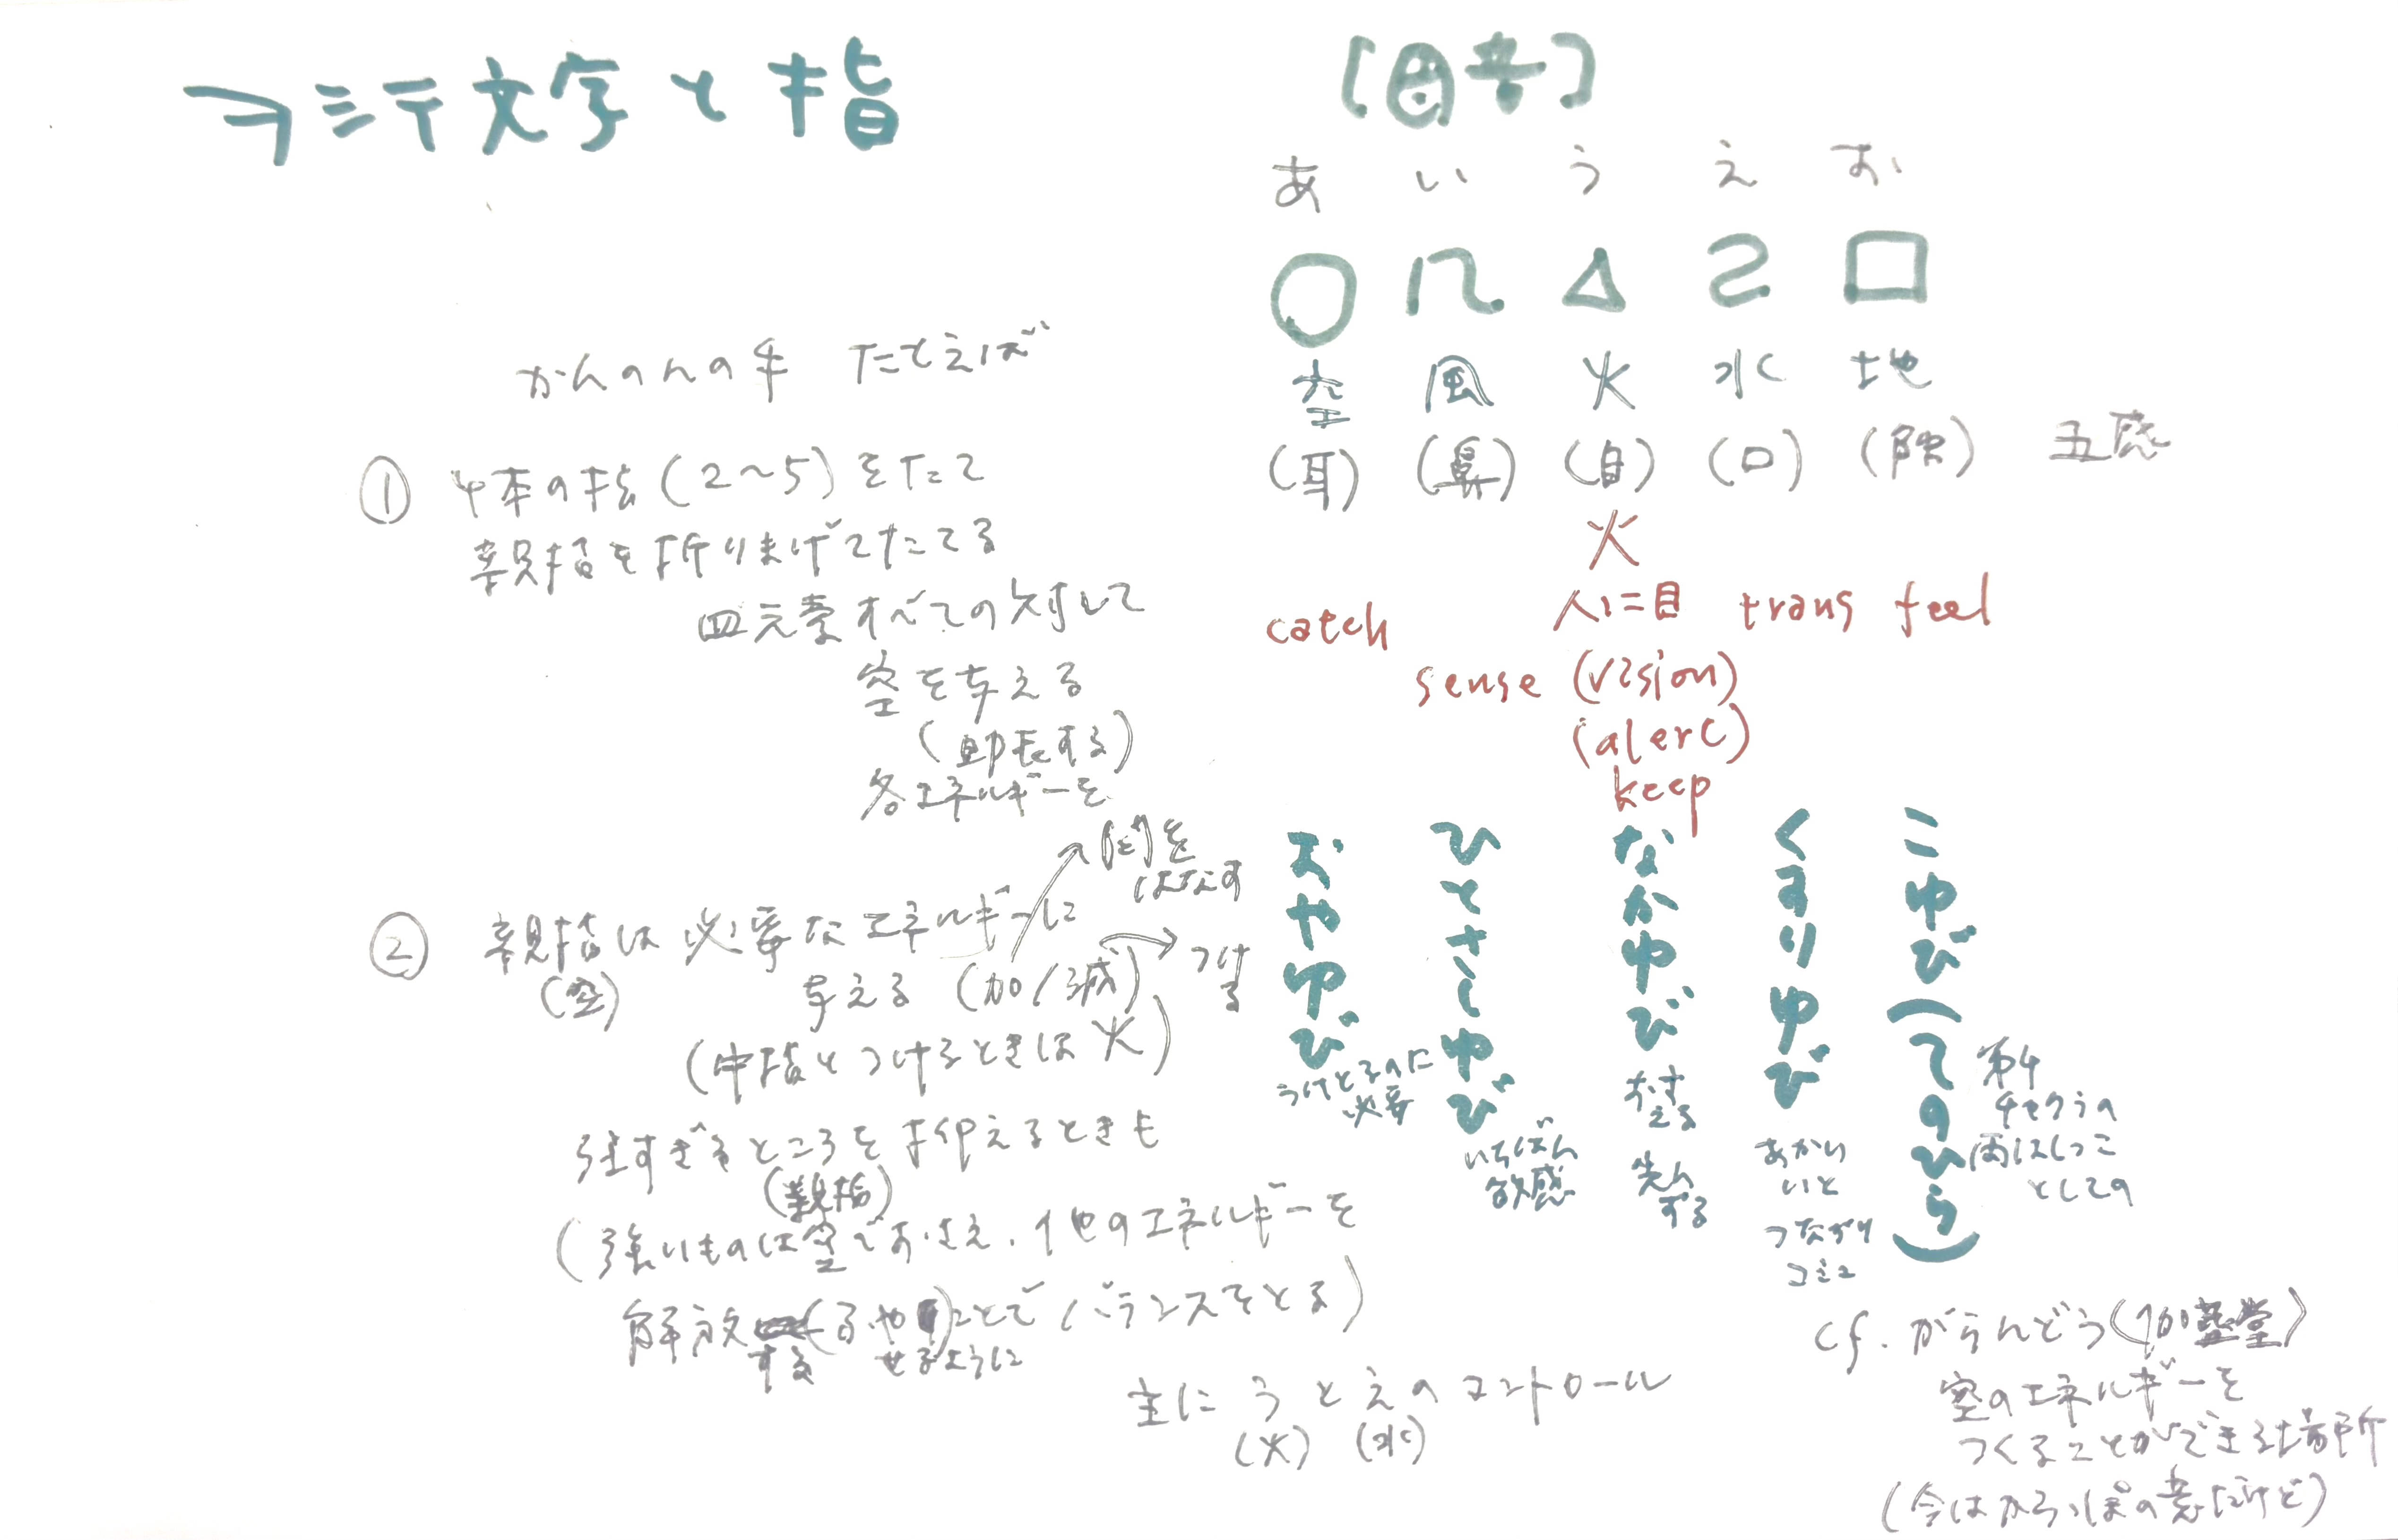 ヲシテ文字と指
かんのんの手 たとえば
① 4本の指(2〜5)をたて
親指を折りまげてたてる
四元素すべての対して
空を与える
(助長する)
各エネルギーを
② 親指は必要なエネルギーに
(空) 与える (加/減)
をはなす
つける
(中指とつけるときは火)
強すぎるところを抑えるときも
(親指)
(強いものは空でおさえ、他のエネルギーを
解放する ことでバランスをとる)
せるように
主に う と え のコントロール
(火) (水)
[母音]
あ い う え お
空 風 火 水 地
(耳) (鼻) (目) (口) 五感
火
catch 人に目 trans feel
sense (vision)
(alert)
keep
おやゆび
うけとるのに
必要
ひとさしゆび
いちばん
敏感
なかゆび
おさ
える
くすりゆび
あかい
いと
つながり
コミュ
こゆび(てのひら)
第4
チャクラの
両はしっこ
としての
cf. がらんどう(伽藍堂)
空のエネルギーを
つくることができる場所
(今はからっぽの意だけど)